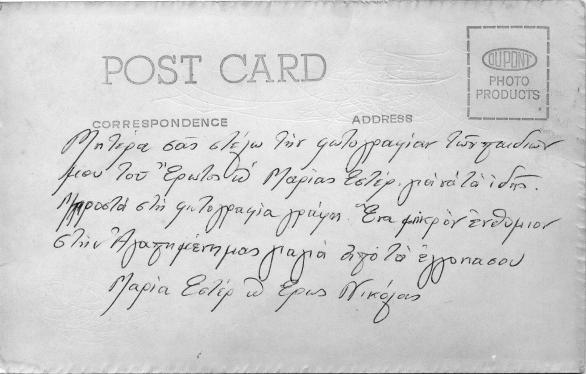 POST CARD
DUPONT
PHOTO
PRODUCTS
CORRESPONDENCE
ADDRESS
Μητέρα σᾶς στέλω τὴν φωτογραφίαν τῶν παιδιῶν
μου τοῦ Ἔρωτος καὶ Μαρίας Ἐστέρ. γιὰ νὰ τὰ ἰδῆς.
Μπροστὰ στὴ φωτογραφία γράφη. Ἕνα μικρὸν ἐνθύμιον
στὴν Ἀγαπημένη μας γιαγιὰ ἀπὸ τὰ ἔγγονιασου
Μαρία Ἐστέρ καὶ Ἔρως Νικόλας